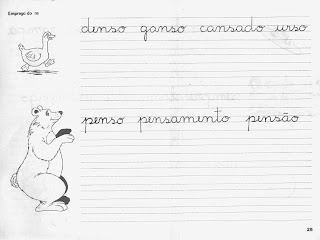 Emprego do ns
denso ganso cansado urso
penso pensamento pensão